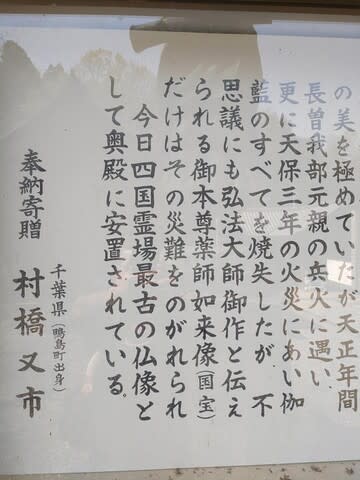 の美を極めていたが天正年間
長曽我部元親の兵火に遇い
更に天保三年の火災にあい伽
藍のすべてを焼失したが 不
思議にも弘法大師御作と伝え
られる御本尊薬師如来像(国宝)
だけはその災難をのがれられ
今日四国霊場最古の仏像と
して奥殿に安置されている
奉納寄贈
千葉県(鴨島町出身)
村橋又市